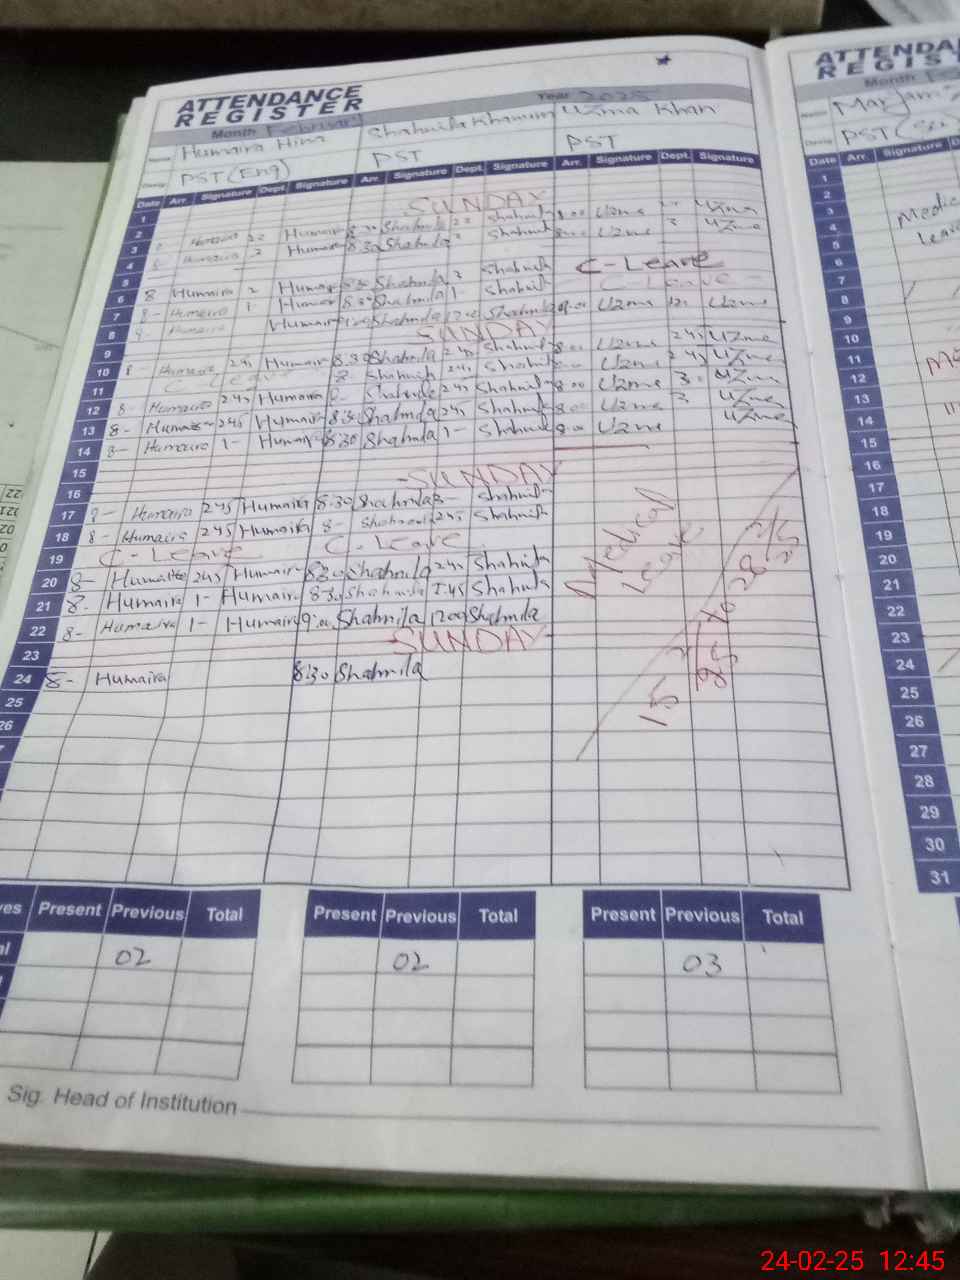 ATTENDANCE
REGISTER
Month February Year 2025
Humaira Hina Shahnila Khanum Uzma Khan
PST (Eng) PST PST
Date Arr. Signature Dept. Signature Arr. Signature Dept. Signature Arr. Signature Dept. Signature
1
2 SUNDAY
3 Humaira Humaira 8:30 Shahnila Shahnila 8:00 Uzma Uzma
4 Humaira Humaira 8:30 Shahnila Shahnila 8:00 Uzma Uzma
5
6 8 Humaira 2 Humaira 8:30 Shahnila 2 Shahnila C-Leave
7 8- Humaira 1- Humaira 8:30 Shahnila 1- Shahnila C-Leave
8 8- Humaira Humaira 9:00 Shahnila 12:00 Shahnila Uzma 12: Uzma
9 SUNDAY
10 8- Humaira 245 Humaira 8:30 Shahnila 245 Shahnila 8:00 Uzma 245 Uzma
11 C-Leave 8- Shahnila 245 Shahnila Uzma 245 Uzma
12 8- Humaira 245 Humaira 8- Shahnila 245 Shahnila 8:00 Uzma 3: Uzma
13 8- Humaira 245 Humaira 8:30 Shahnila 245 Shahnila 8:00 Uzma 3 Uzma
14 8- Humaira 1- Humaira 8:30 Shahnila 1- Shahnila 8:00 Uzma Uzma
15
16 SUNDAY
17 8- Humaira 245 Humaira 8:30 Shahnila Shahnila
18 8- Humaira 245 Humaira 8- Shahnila 245 Shahnila
19 C-Leave C-Leave
20 8- Humaira 245 Humaira 8:30 Shahnila 245 Shahnila
21 8- Humaira 1- Humaira 8:30 Shahnila 1:45 Shahnila
22 8- Humaira 1- Humaira 9:00 Shahnila 1200 Shahnila
23 SUNDAY
24 8- Humaira 8:30 Shahnila
25
26
Medical
Leave
15 2/25 to 28 2/25
Present Previous Total
02
Present Previous Total
02
Present Previous Total
03
Sig. Head of Institution
ATTENDA
REGIS
Month
Maryam
PST
Date Arr. Signature
1
2
3
4
5
6
7
8
9
10
11
12
13
14
15
16
17
18
19
20
21
22
23
24
25
26
27
28
29
30
31
Medic
Leave
24-02-25 12:45